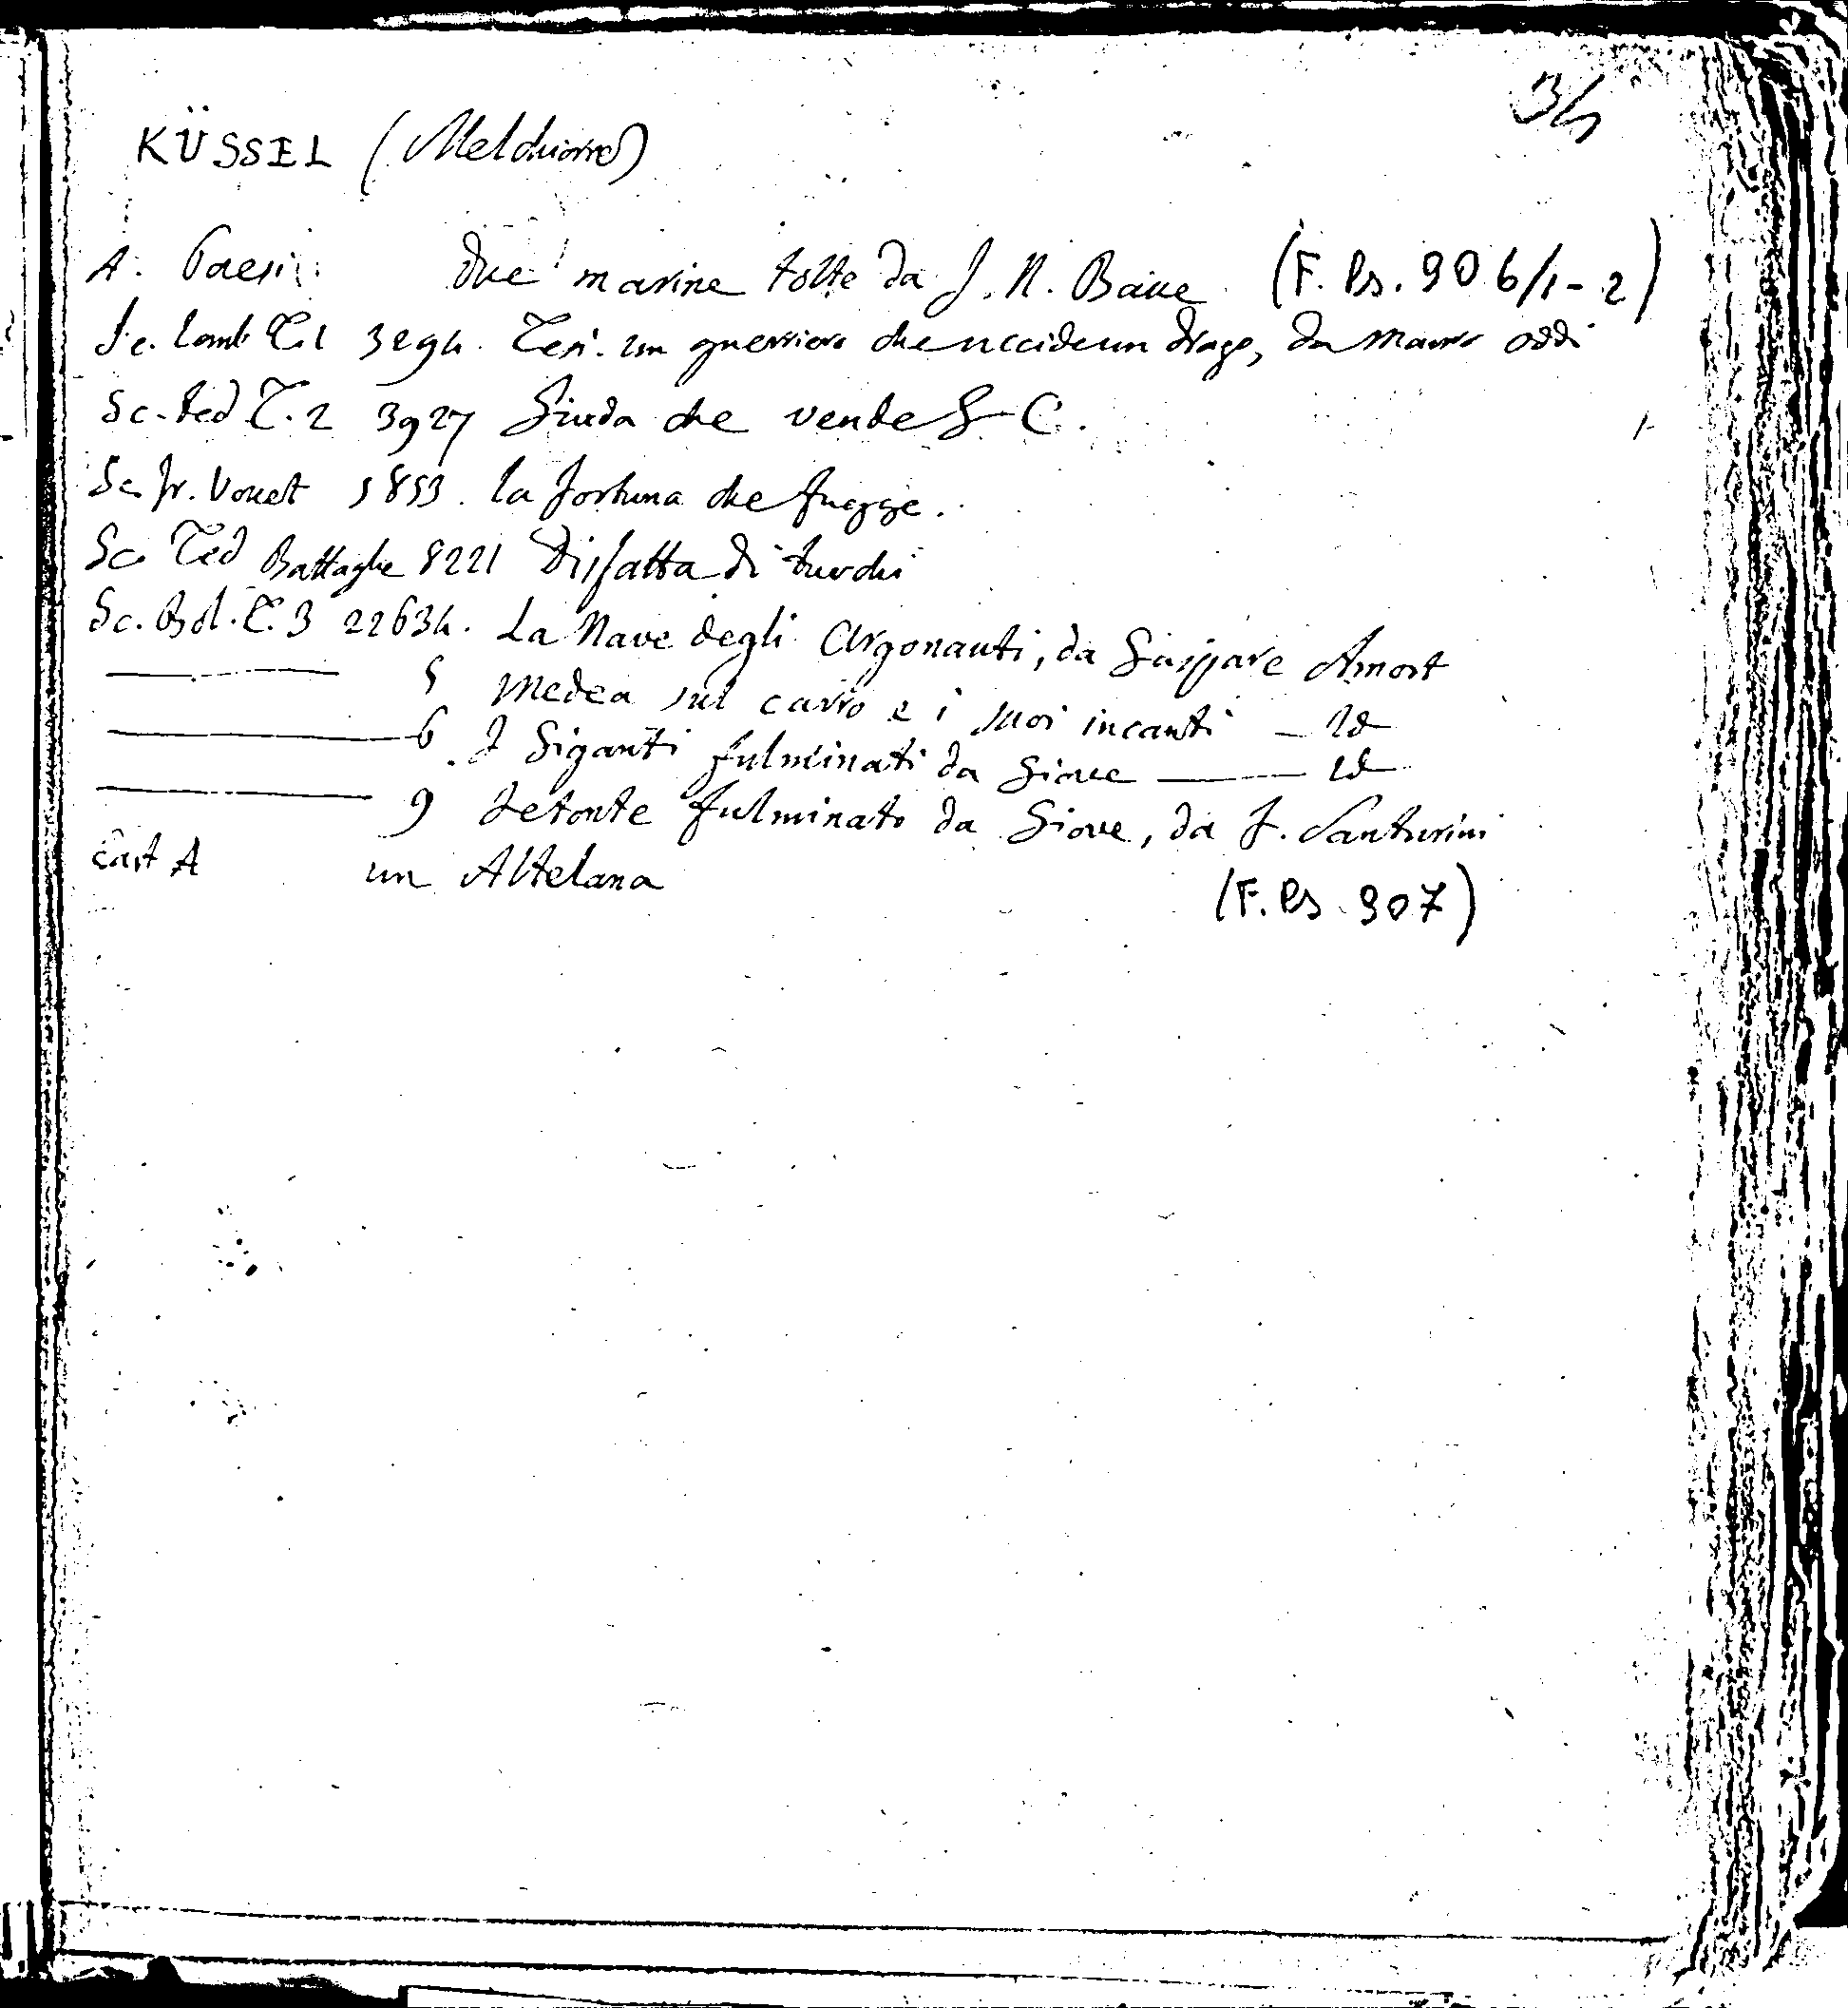 34
KÜSSEL (Melchiorre)
A. Paesi due marine tolte da J. N. Baue (F. Ps. 906/1-2)
Sc. Lomb T.1 3294. Tesi. un guerriero che uccide un drago, da Mauro oddi
Sc. ted T. 2 3927 Giuda che vende G C.
Sc. fr. Vouet 5853. la fortuna che fugge.
Sc. Ted Battaglie 8221 Disfatta di turchi
Sc. Bol. T. 3 22634. La Nave degli Argonauti, da Gaspare Amort
5 Medea sul carro e i suoi incanti - Id
6. I Giganti fulminati da Giove - Id
9 Fetonte fulminato da Giove, da F. Santurini
cart A un Altelana (F. Ps. 907)